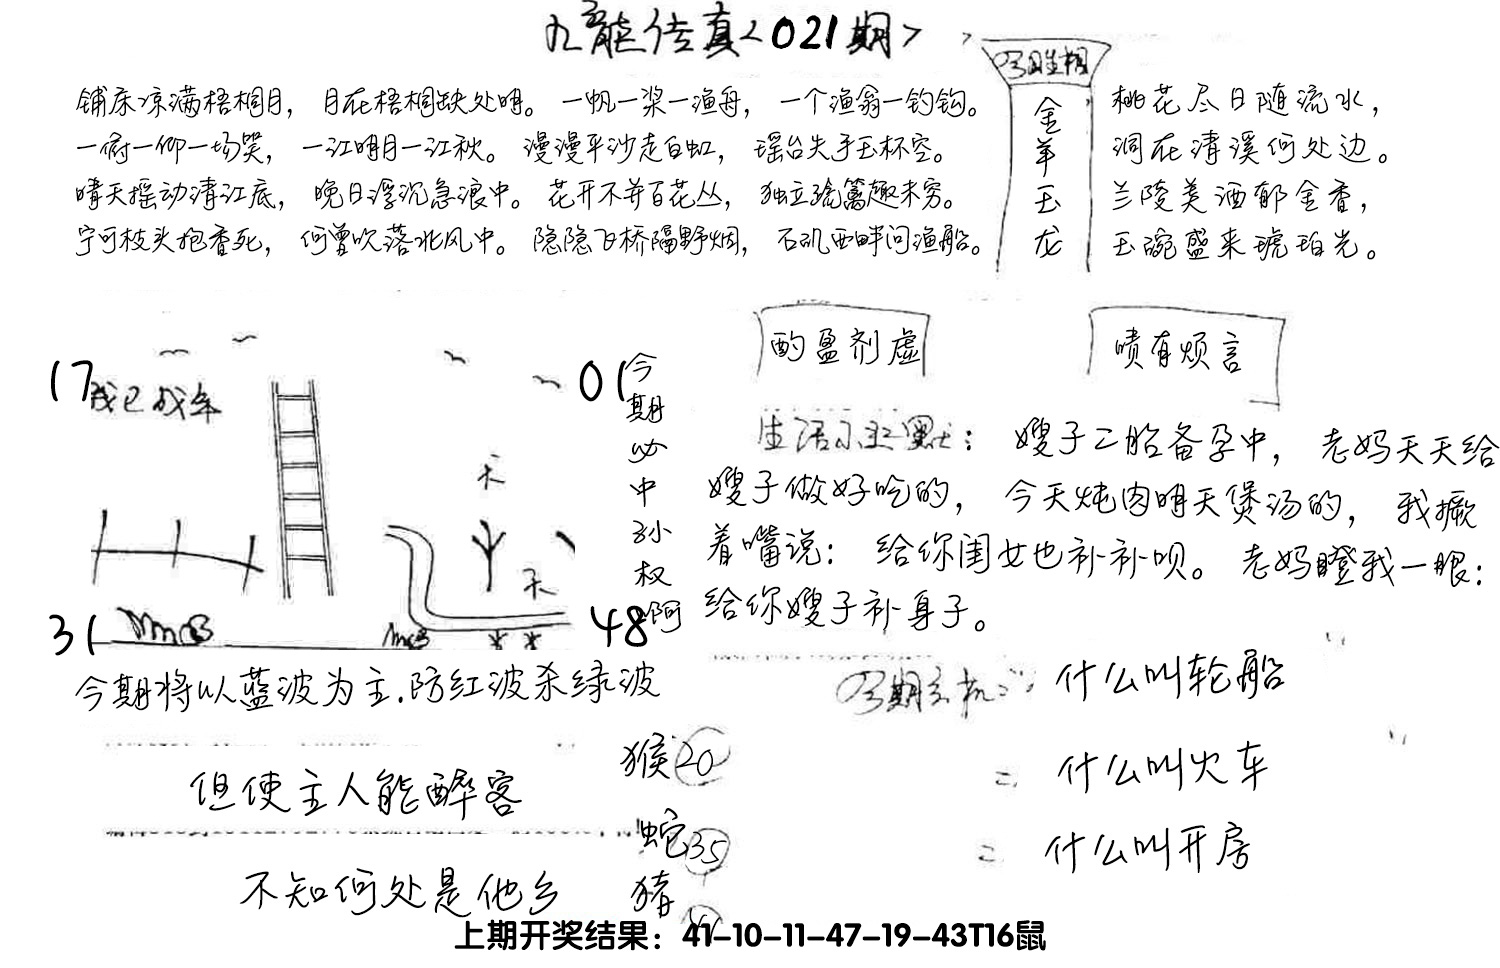 九龙传真<021期>
铺床凉满梧桐月，月在梧桐缺处明。一帆一桨一渔舟，一个渔翁一钓钩。
一俯一仰一场笑，一江明月一江秋。漫漫平沙走白虹，瑶台失手玉杯空。
晴天摇动清江底，晚日浮沉急浪中。花开不并百花丛，独立疏篱趣未穷。
宁可枝头抱香死，何曾吹落北风中。隐隐飞桥隔野烟，石矶西畔问渔船。
今期生相
金羊玉龙
桃花尽日随流水，
洞在清溪何处边。
兰陵美酒郁金香，
玉碗盛来琥珀光。
17
01
31
48
今期必中孙权啊
今期将以蓝波为主.防红波杀绿波
酌盈剂虚
啧有烦言
生活小幽默：嫂子二胎备孕中，老妈天天给
嫂子做好吃的，今天炖肉明天煲汤的，我撅
着嘴说：给你闺女也补补呗。老妈瞪我一眼：
给你嫂子补身子。
今期玄机：什么叫轮船
= 什么叫火车
= 什么叫开房
但使主人能醉客
不知何处是他乡
猴20
蛇35
猪
上期开奖结果：41-10-11-47-19-43T16鼠